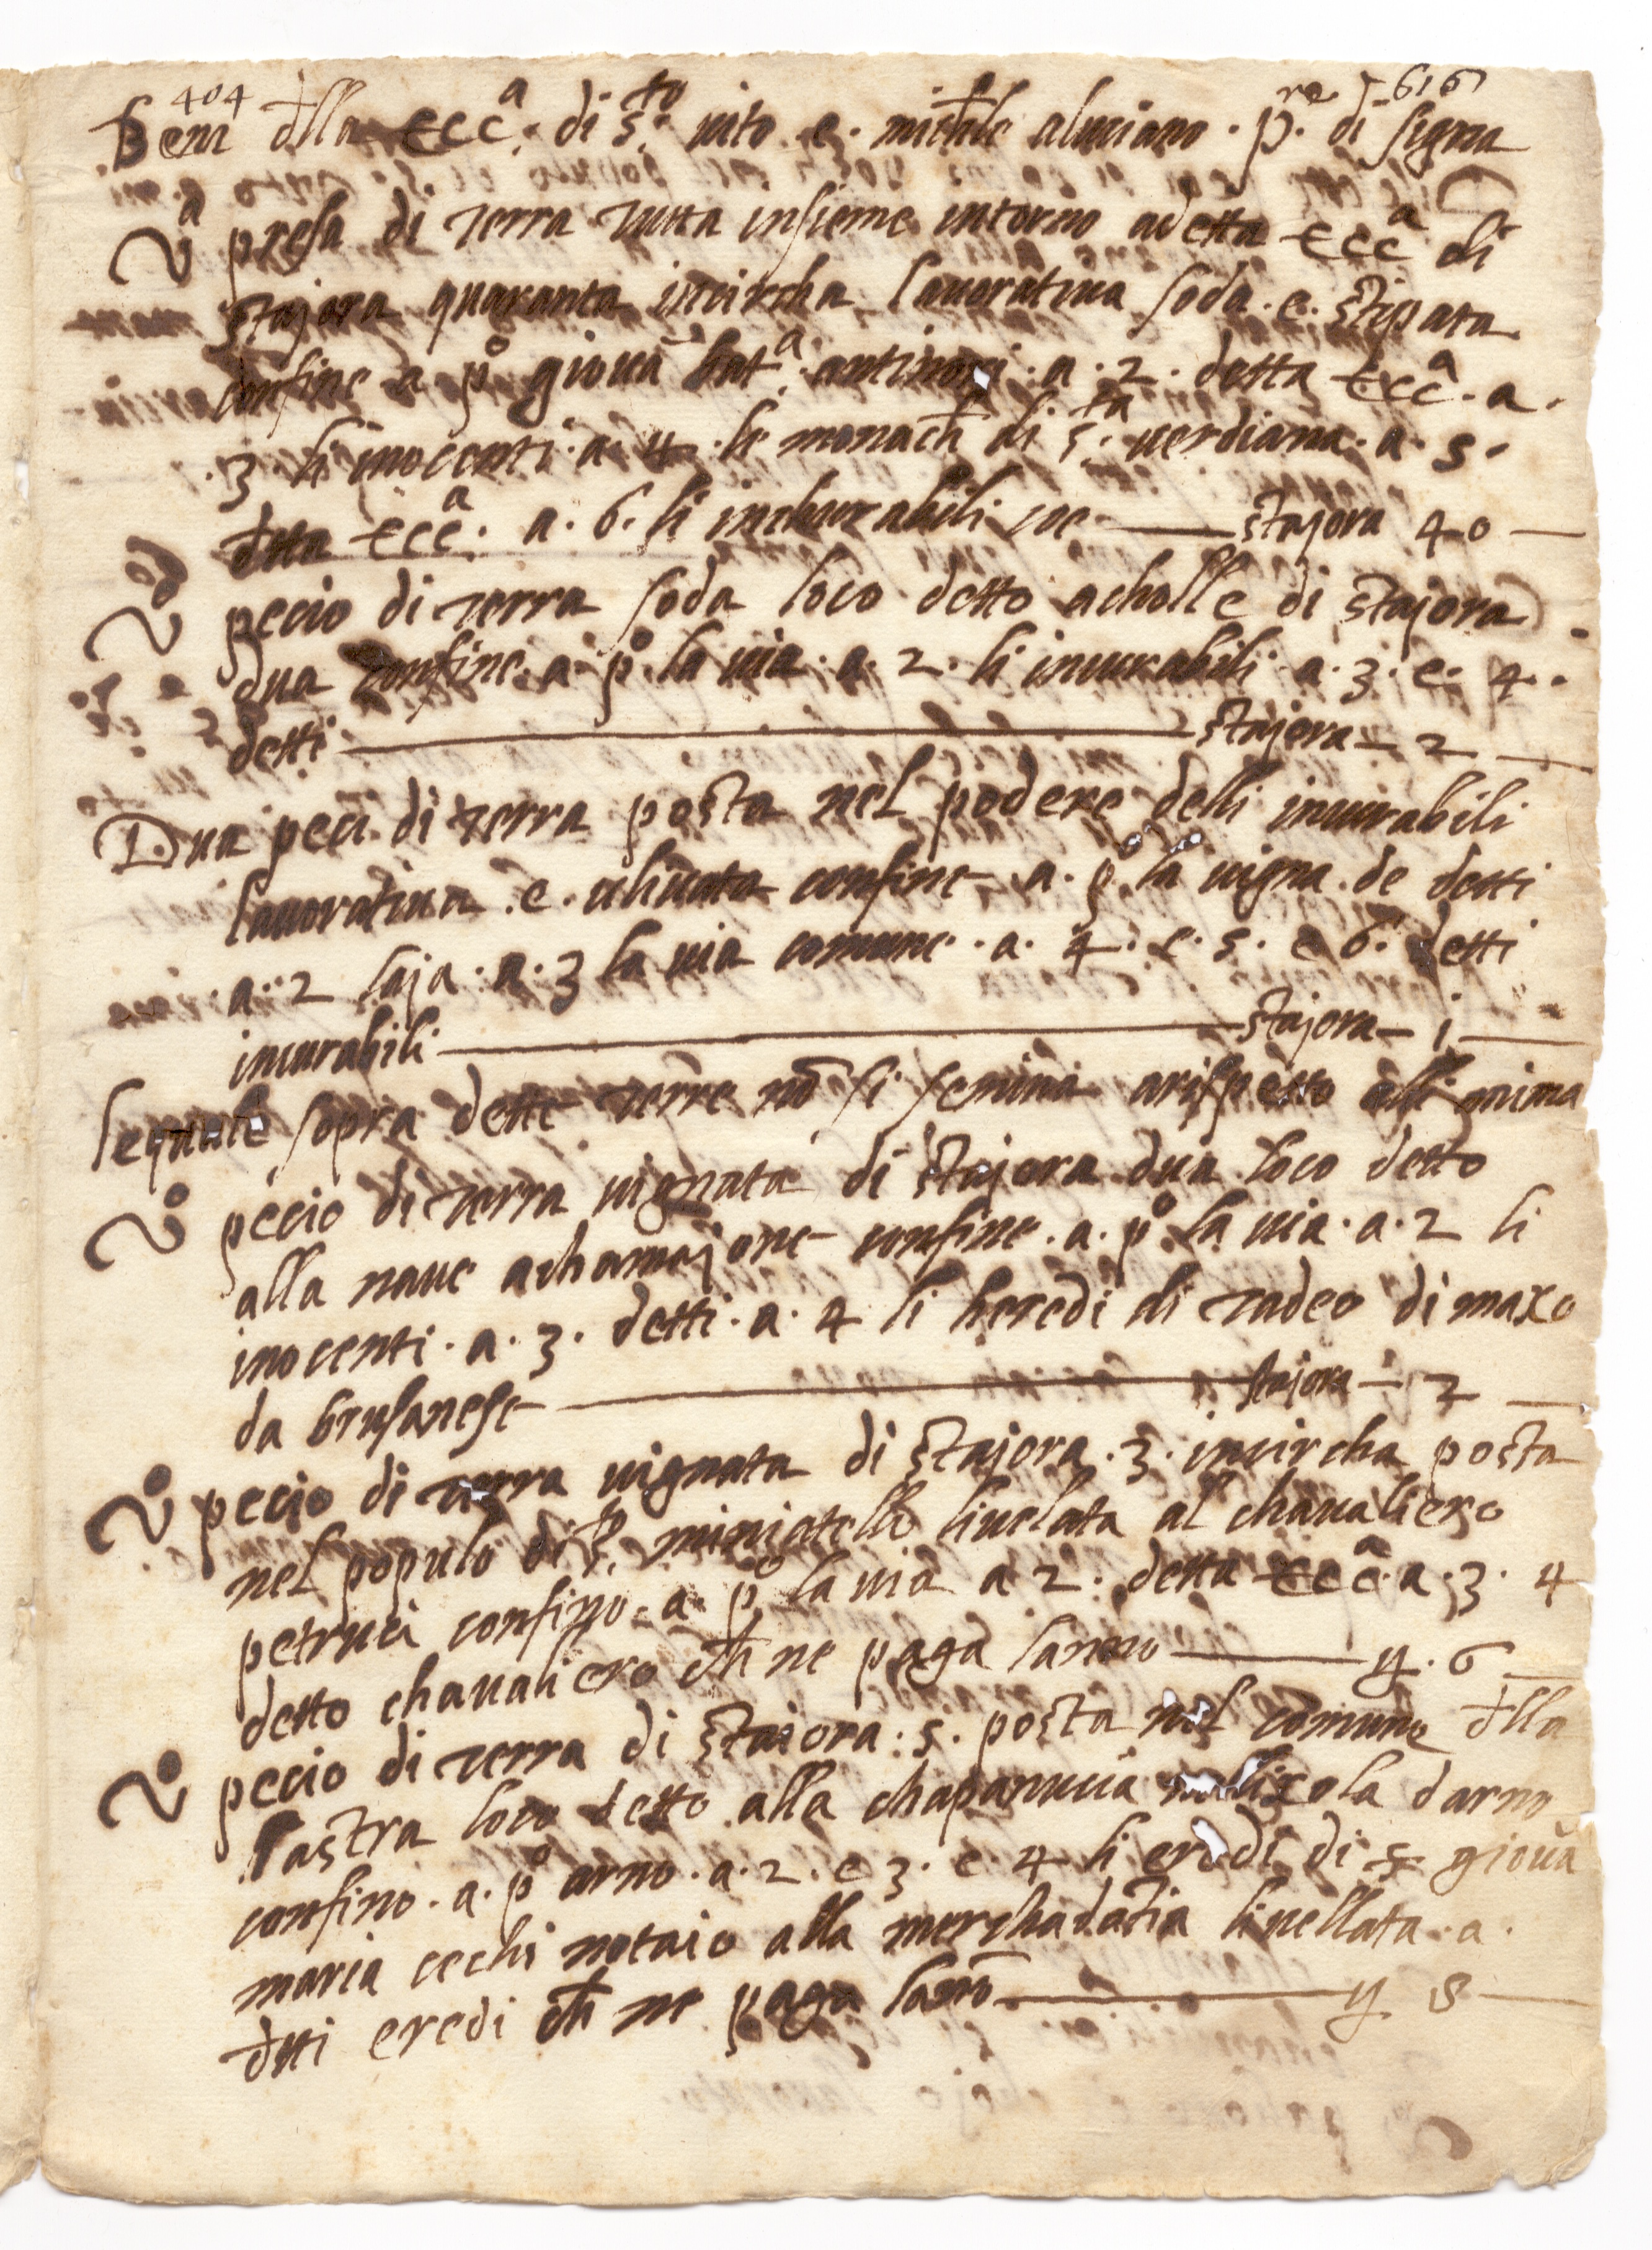 404 616
Beni dlla Ecc.a di S.to uito e michele almiano . p.re di signa
Va presa di terra tutta insieme intorno adetta Ecc.a di
stajora quaranta incircha lauoratiua soda . e . stipata
confine a po giouā bat.a antinori . a . 2 . detta Ecc.a . a .
. 3 li inocenti . a . 4 . le monach di s.ta uerdiana . a . 5 .
dtta Ecc.a . a . 6 . li inchurabili
stajora 40
Vo pecio di terra soda loco detto acholle di stajora
dua confine . a . po la uia . a . 2 . li incurabili a . 3 . e . 4 .
detti stajora 2
Dua peci di terra posta nel podere delli incurabili
lauoratiua . e . uliuata confine a . po la uigna . de detti
. a . 2 laja . a . 3 la uia comune . a . 4 . e . 5 . e 6 . detti
incurabili stajora i
lequale sopra dette terre nō si semina arispetto
Vo pecio di terra uignata di stajora dua loco detto
alla naue achamajone confine . a . po la uia . a . 2 li
inocenti . a . 3 . detti . a . 4 li heredi di tadeo di maxo
da brusanese stajora 2
Vo pecio di terra uignata di stajora . 3 . incircha posta
nel populo di S.p miniatello liuelata al chaualiero
petruci confino . a . po la uia a 2 . detta Ecc.a . a . 3 . 4
detto chaualiero ch ne paga lanno 6
Vo pecio di terra di staiora : 5 . posta nel comune dlla
lastra loco detto alla chapanucia isola darno
confino . a . po arno . a . 2 . e 3 . e 4 li eredi di s giouā
maria cechi notaio alla merchadatia liuellata . a .
dtti eredi ch ne paga lanō 8